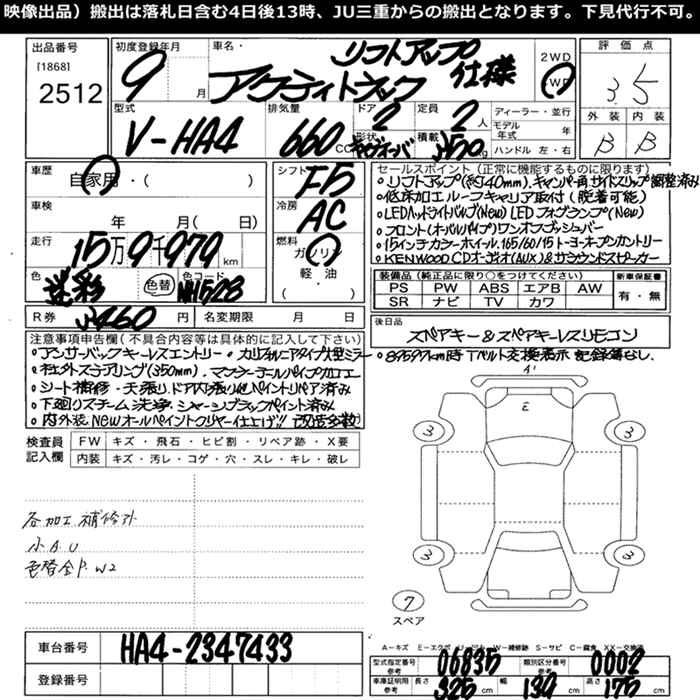 映像出品）搬出は落札日含む4日後13時、JU三重からの搬出となります。下見代行不可。
出品番号
[1868]
2512
初度登録年月
9
月
車名・
リフトアップ
アクティトラック 仕様
2WD
4WD
評価点
3.5
外装 内装
B B
型式
V-HA4
排気量
660
CC
ドア
2
形状
定員
2
人
積載
350
kg
ディーラー・並行
モデル年式 年
ハンドル 左・右
車歴
自家用・( )
車検
年 月( 日)
走行
15万9千979
km
色
迷彩
色替
色コード
NH528
R券
¥460
円
名変期限 年 月 日
シフト
F5
冷房
AC
燃料
ガソリン
軽・油
( )
セールスポイント(正常に機能するものに限ります)
・リフトアップ(約40mm)、キャンバー角 サイドスリップ調整済み
・低床加工 ルーフキャリア取付(脱着可能)
・LEDヘッドライトバルブ(New) LEDフォグランプ(New)
・フロント(オーバルパイプ)ワンオフプッシュバー
・15インチカラーホイール、165/60/15トーヨーオープンカントリー
・KENWOOD CDオーディオ(AUX)&サラウンドスピーカー
装備品(純正品に限り○をつけてください)
PS PW ABS エアB AW
SR ナビ TV カワ
新車保証書
有・無
後日品
スペアキー&スペアキーレスリモコン
注意事項申告欄(不具合内容等は具体的に記入して下さい)
・アンサーバックキーレスエントリー・カリフォルニアタイプ大型ミラー
・社外ステアリング(350mm)、マフラーテールパイプ加工
・シート補修・天張り、ドア内張り他ペイントリペア済み
・下廻りスチーム洗浄、シャーシブラックペイント済み
・内外装、NEWオールペイントクリヤー仕上げ!! 改造多数)
・89597km時 Tベルト交換表示 記録簿なし。
検査員記入欄
FW キズ・飛石・ヒビ割・リペア跡・X要
内装 キズ・汚レ・コゲ・穴・スレ・キレ・破レ
各加工補修外
小A.U
色替全P.W2
E
3
3
3
3
7
スペア
車台番号
HA4-2347433
登録番号
型式指定番号
参考
06835
類別区分番号
参考
0002
車庫証明用
参考
長さ
325
cm
幅
139
cm
高さ
175
cm